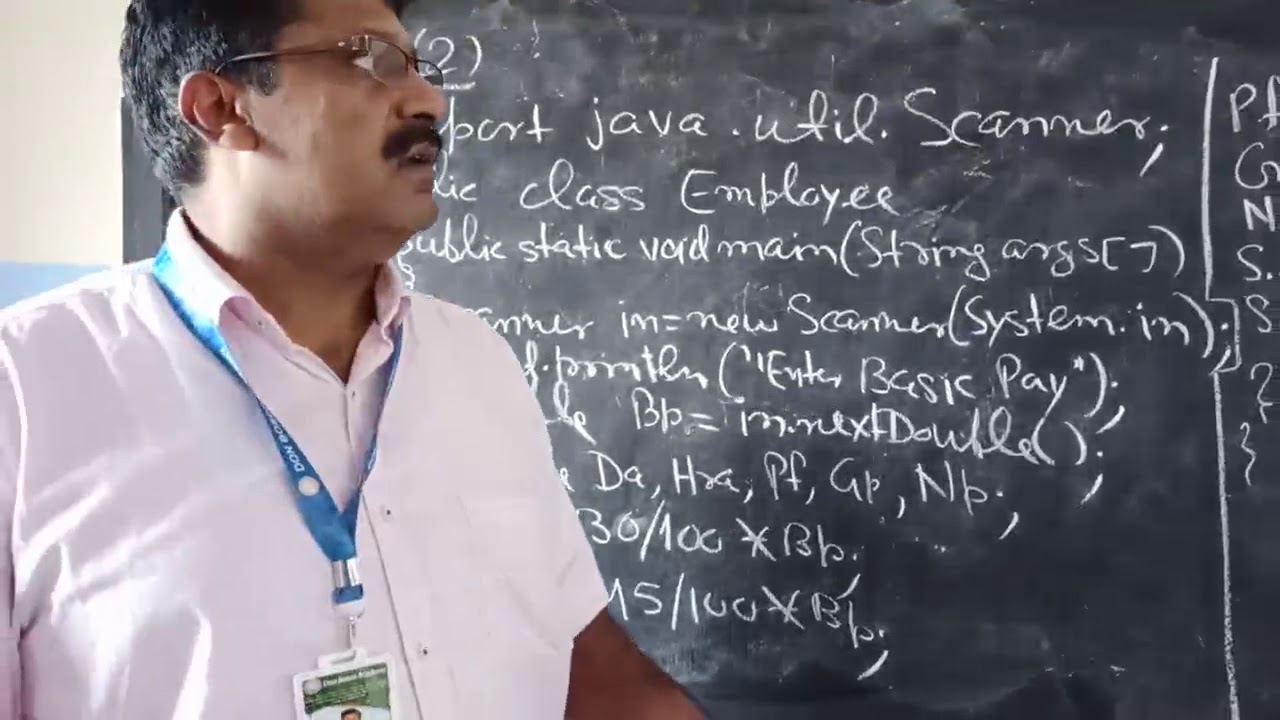 (2)
port java.util.Scanner;
lic class Employee
public static void main(String args[])
{
anner in=new Scanner(System.in);
.println("Enter Basic Pay");
Bp=in.nextDouble();
Da, Hra, Pf, Gp, Np;
30/100*Bp;
15/100*Bp;
Pf
G
N
S.
S
}
}
DON BOS
Don Bosco Academy